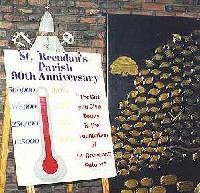 St. Brendan's
Parish
90th Anniversary
The Gift
you Give
Today
is the
Foundation
of
St. Brendan's
Future